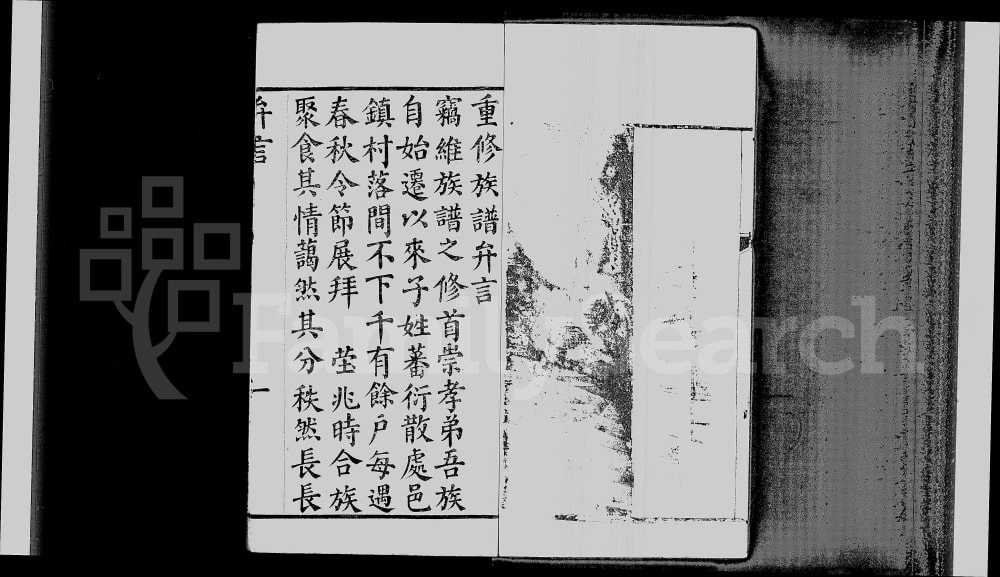 重修族譜弁言
竊維族譜之修首崇孝弟吾族
自始遷以來子姓蕃衍散處邑
鎮村落間不下千有餘戶每遇
春秋令節展拜 塋兆時合族
聚食其情藹然其分秩然長長
弁言 一
FamilySearch